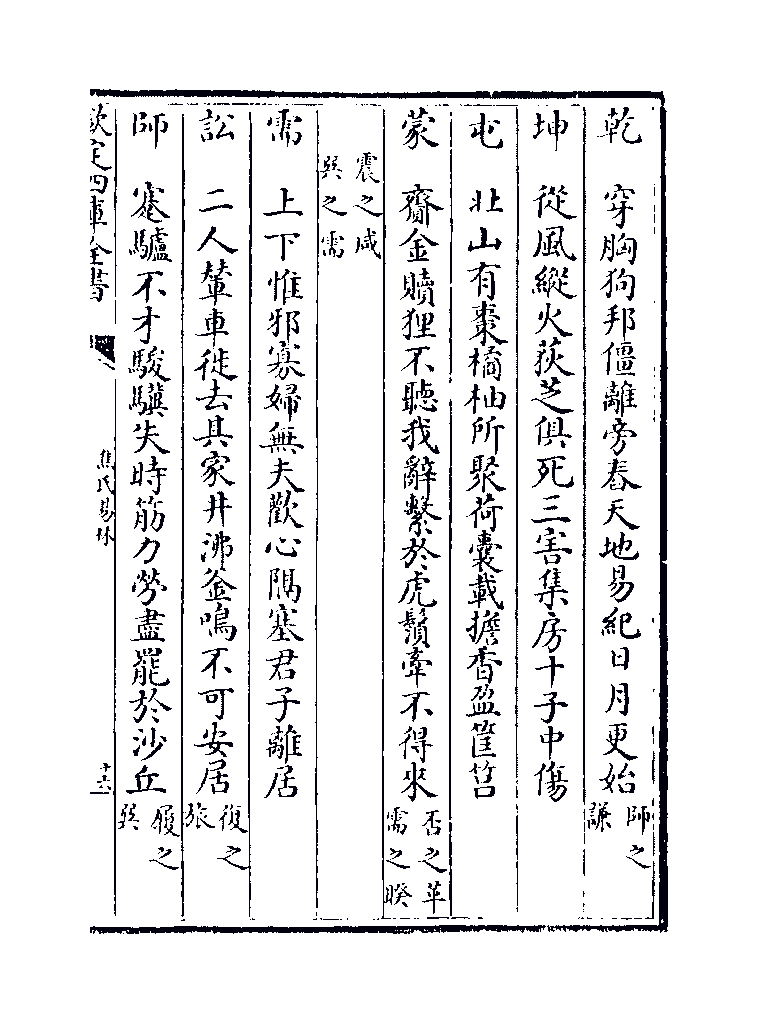 乾　穿胸狗邦僵離旁舂天地易紀日月更始師之謙
坤　從風縱火荻芝俱死三害集房十子中傷
屯　北山有棗橘柚所聚荷囊載擔香盈筐筥
蒙　齎金贖狸不聽我辭繫於虎鬚牽不得來否之革需之睽
震之咸巽之需
需　上下惟邪寡婦無夫歡心隔塞君子離居
訟　二人輦車徙去其家井沸釜鳴不可安居復之旅
師　蹇驢不才駿驥失時筋力勞盡罷於沙丘履之巽
欽定四庫全書　焦氏易林　十六